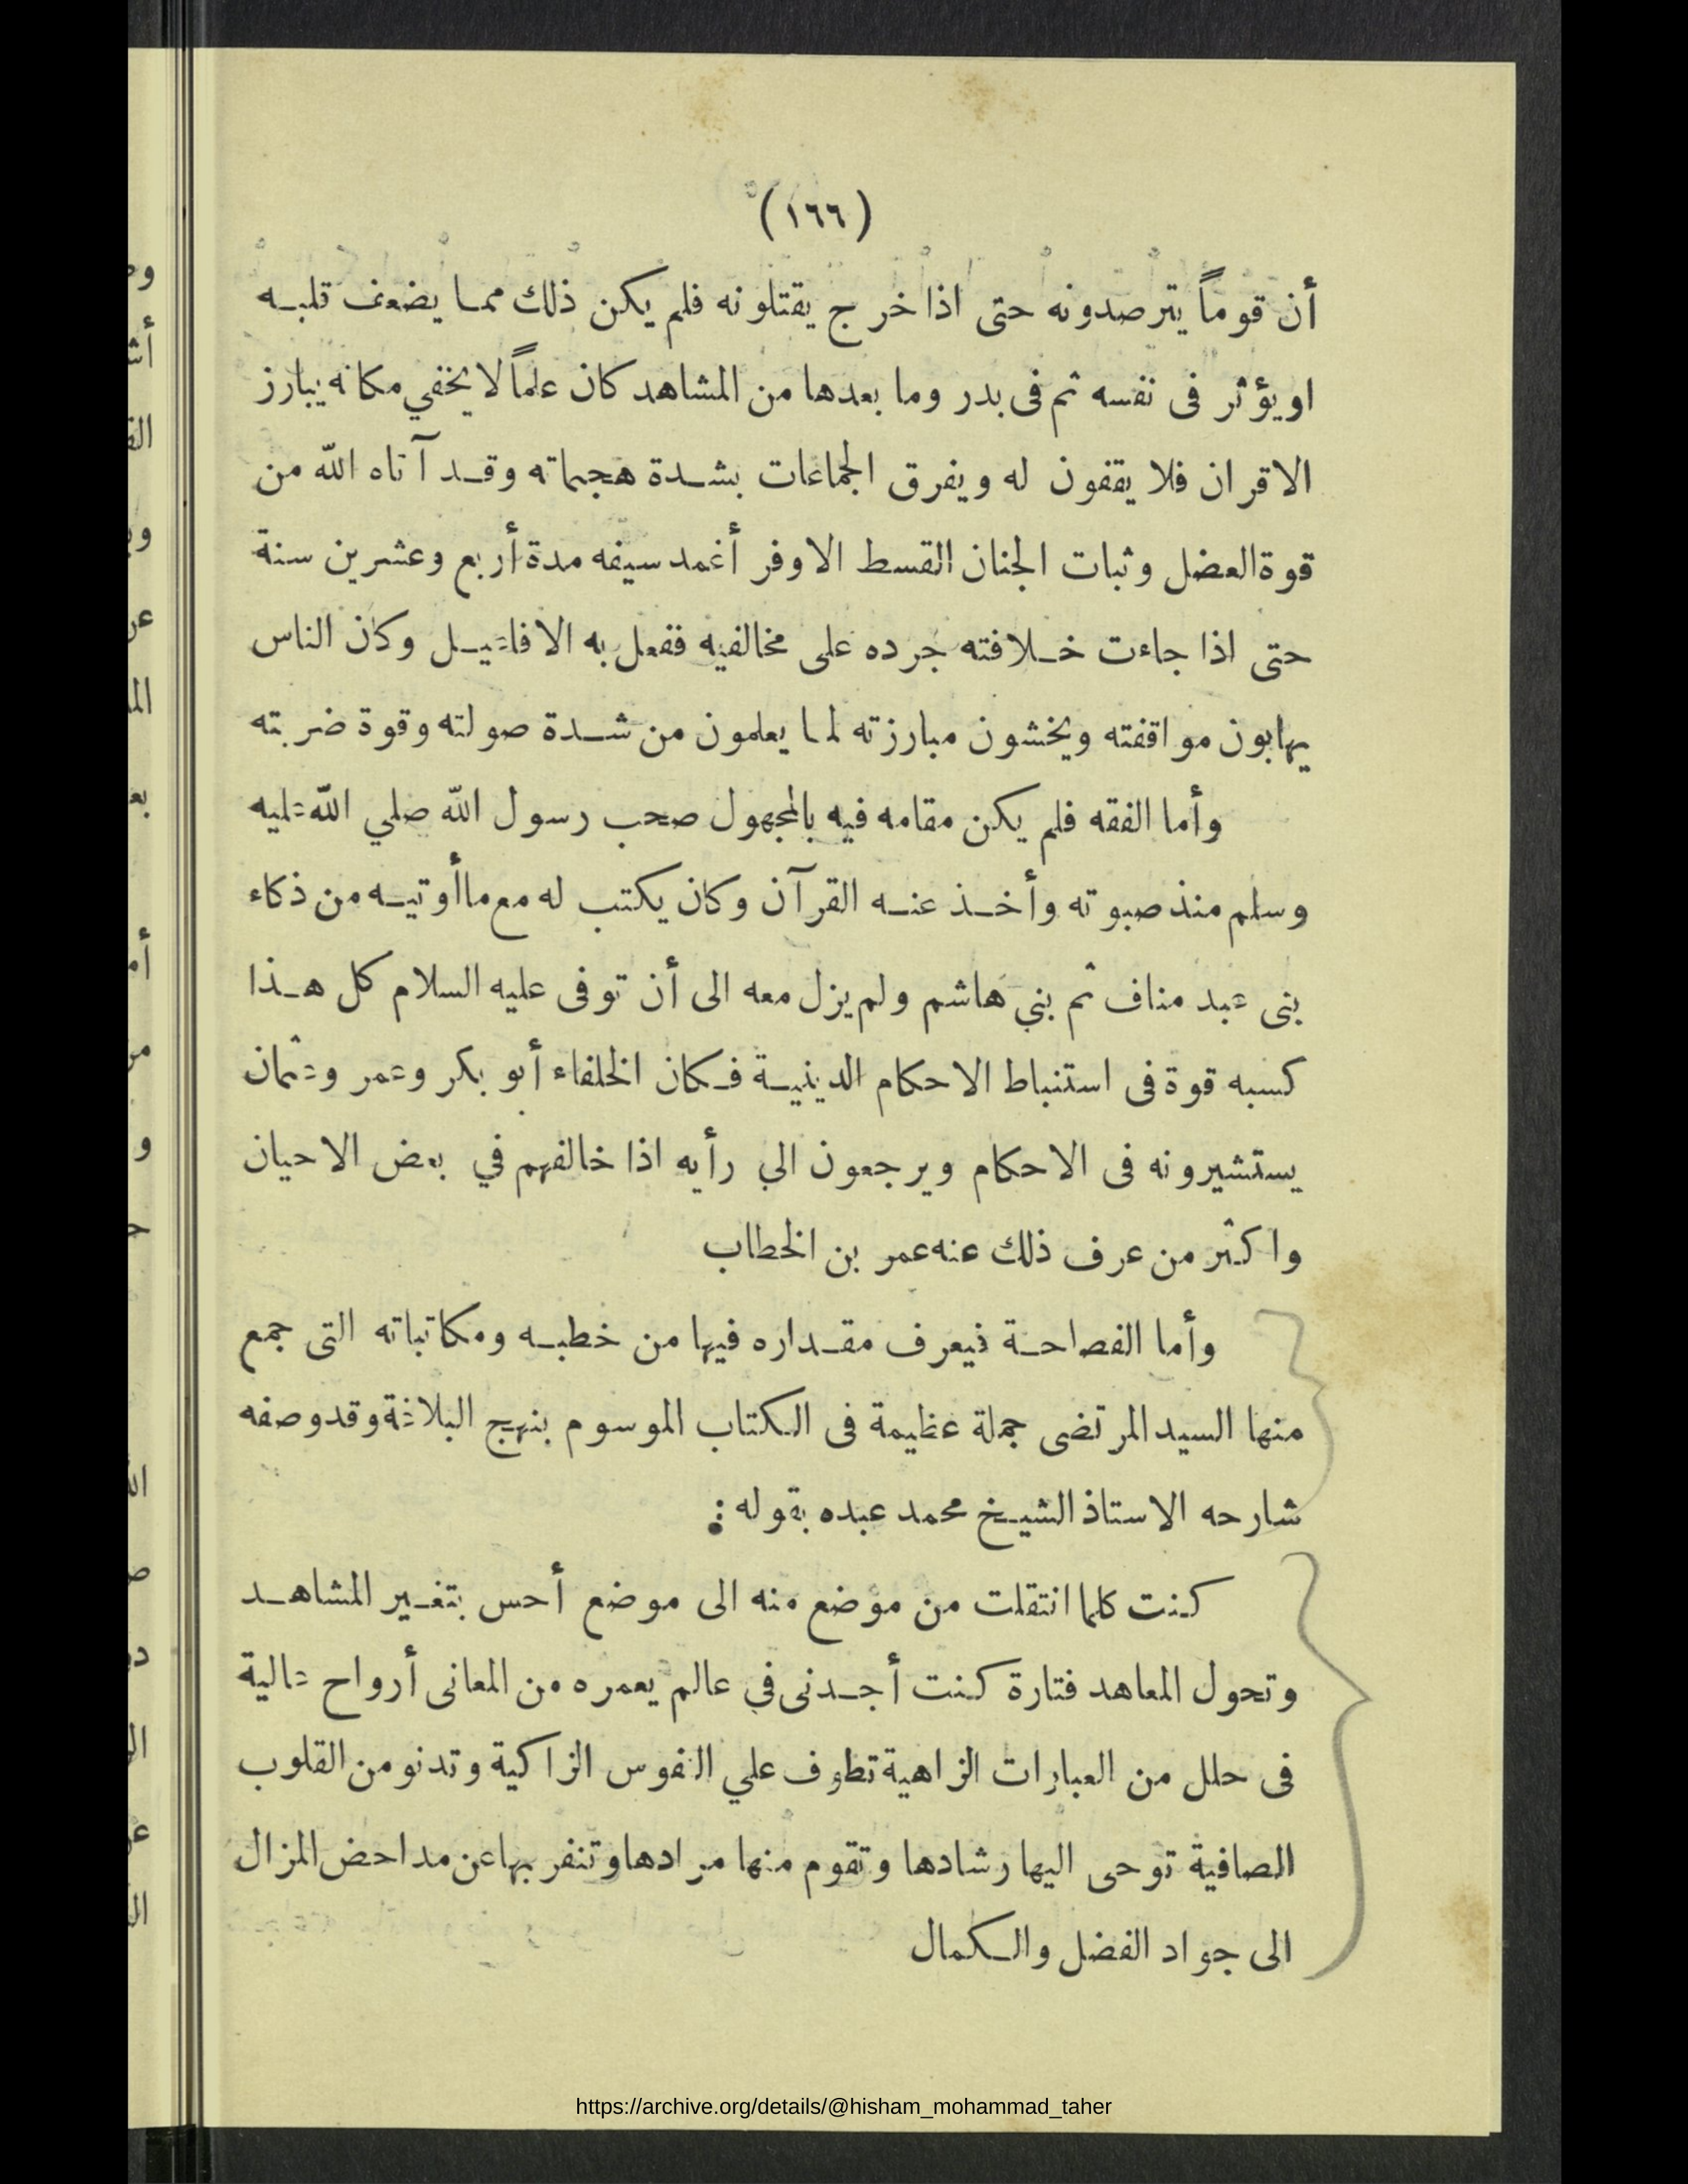 (١٦٦)
أن قوماً يترصدونه حتى اذا خرج يقتلونه فلم يكن ذلك مما يضعف قلبه
او يؤثر فى نفسه ثم فى بدر وما بعدها من المشاهد كان علماً لا يخفي مكانه يبارز
الاقران فلا يقفون له ويفرق الجماعات بشدة هجماته وقد آتاه الله من
قوة العضل وثبات الجنان القسط الاوفر أغمد سيفه مدة أربع وعشرين سنة
حتى اذا جاءت خلافته جرده على مخالفيه ففعل به الافاعيل وكان الناس
يهابون مواقفته ويخشون مبارزته لما يعلمون من شدة صولته وقوة ضربته
وأما الفقه فلم يكن مقامه فيه بالمجهول صحب رسول الله صلي الله عليه
وسلم منذ صبوته وأخذ عنه القرآن وكان يكتب له مع ما أوتيه من ذكاء
بنى عبد مناف ثم بني هاشم ولم يزل معه الى أن توفى عليه السلام كل هذا
كسبه قوة فى استنباط الاحكام الدينية فكان الخلفاء أبو بكر وعمر وعثمان
يستشيرونه فى الاحكام ويرجعون الي رأيه اذا خالفهم في بعض الاحيان
واكثر من عرف ذلك عنه عمر بن الخطاب
وأما الفصاحة فيعرف مقداره فيها من خطبه ومكاتباته التى جمع
منها السيد المرتضى جملة عظيمة فى الكتاب الموسوم بنهج البلاغة وقد وصفه
شارحه الاستاذ الشيخ محمد عبده بقوله :
كنت كلما انتقلت من موضع منه الى موضع أحس بتغير المشاهد
وتحول المعاهد فتارة كنت أجدنى في عالم يعمره من المعانى أرواح عالية
فى حلل من العبارات الزاهية تطوف علي النفوس الزاكية وتدنو من القلوب
الصافية توحى اليها رشادها وتقوم منها مرادها وتنفر بها عن مداحض المزال
الى جواد الفضل والكمال
https://archive.org/details/@hisham_mohammad_taher